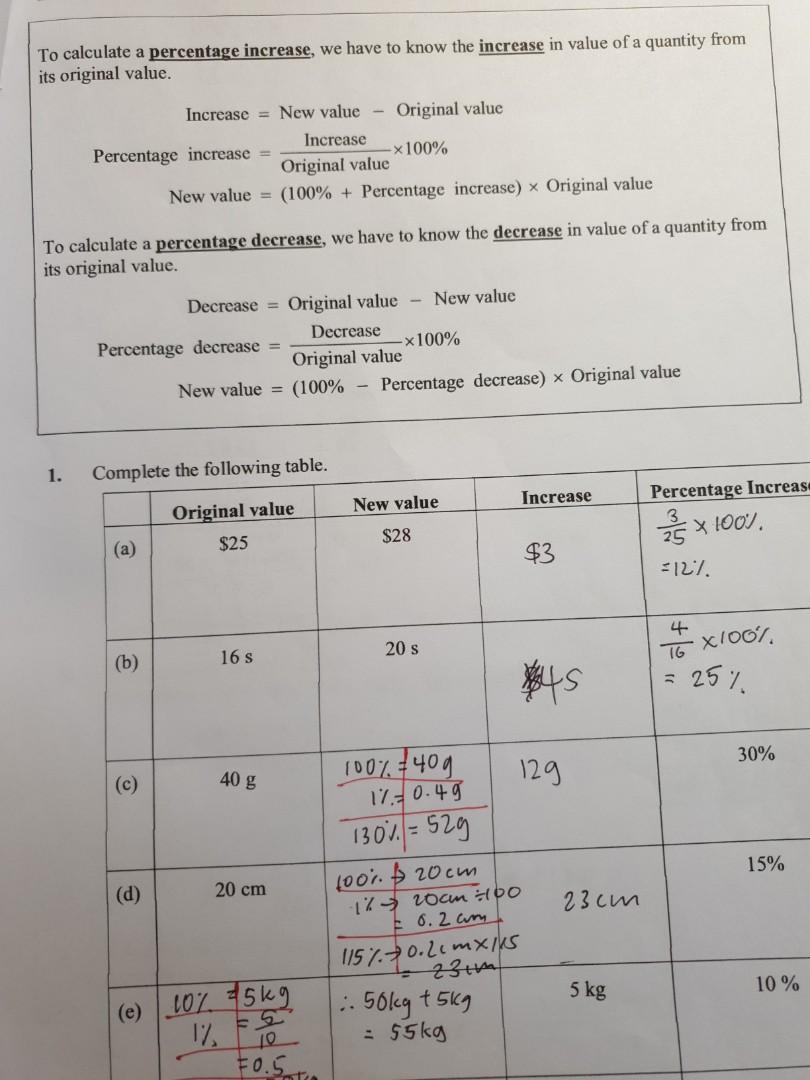 To calculate a percentage increase, we have to know the increase in value of a quantity from
its original value.
Increase = New value − Original value
Percentage increase = Increase / Original value ×100%
New value = (100% + Percentage increase) × Original value
To calculate a percentage decrease, we have to know the decrease in value of a quantity from
its original value.
Decrease = Original value − New value
Percentage decrease = Decrease / Original value ×100%
New value = (100% − Percentage decrease) × Original value
1. Complete the following table.
Original value New value Increase Percentage Increas
(a) $25 $28 $3 3/25 × 100%.
=12%.
(b) 16 s 20 s 4s 4/16 ×100%.
= 25%
(c) 40 g 100% = 40g 12g 30%
1% = 0.4g
130% = 52g
(d) 20 cm 100% → 20cm 23cm 15%
1% → 20cm ÷100
= 0.2 cm
115% → 0.2cm×115
= 23cm
(e) 10% = 5kg ∴ 50kg + 5kg 5 kg 10 %
1% = 5/10 = 55kg
=0.5